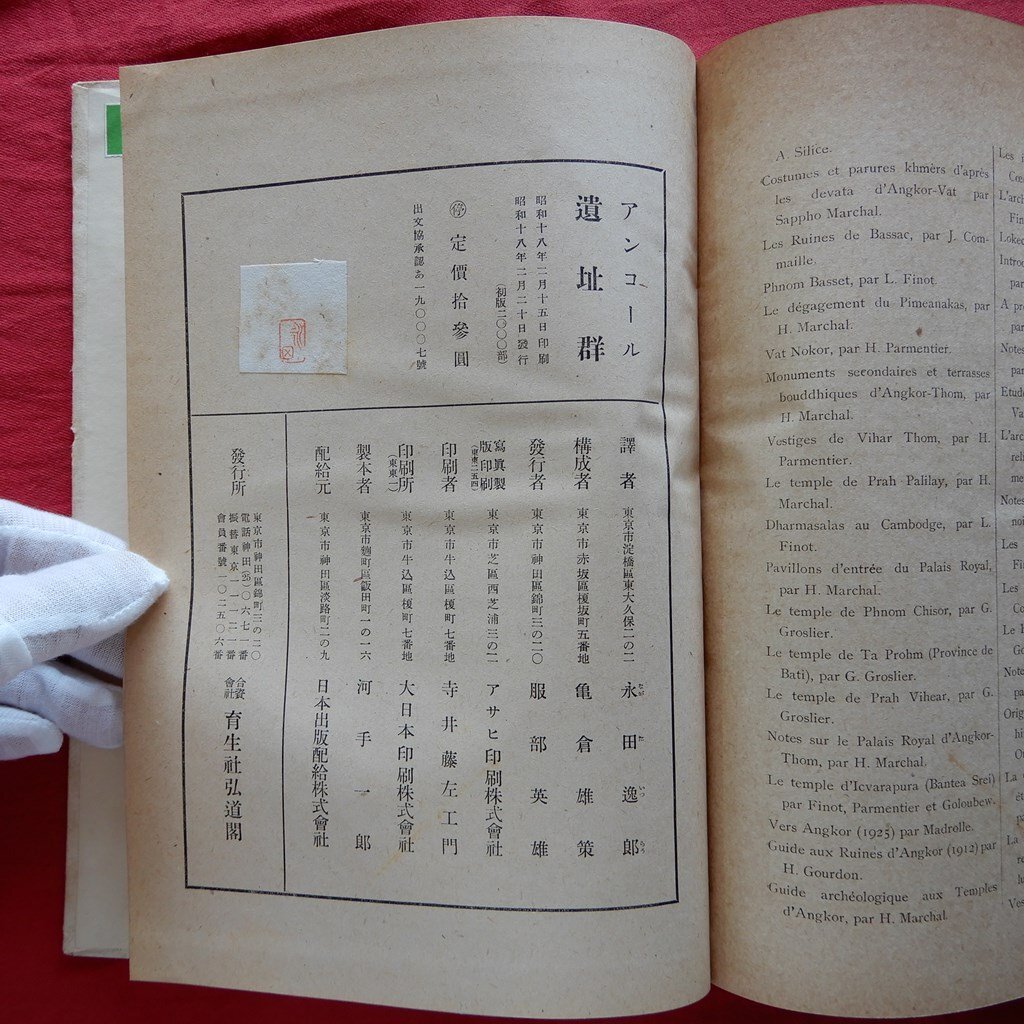 アンコール
遺址群
昭和十八年二月十五日印刷
昭和十八年二月二十日發行
(初版二〇〇〇部)
停 定價拾參圓
出文協承認あ一九〇〇〇七號
譯者 東京市淀橋區東大久保二の二 永田逸郎
なが だ いつ らう
構成者 東京市赤坂區榎坂町五番地 亀倉雄策
發行者 東京市神田區錦町三の二〇 服部英雄
寫眞製版印刷 (東東二五四) 東京市芝區西芝浦三の二 アサヒ印刷株式會社
印刷者 東京市牛込區榎町七番地 寺井藤左工門
印刷所 (東東一) 東京市牛込區榎町七番地 大日本印刷株式會社
製本者 東京市麴町區飯田町一の一六 河手一郎
配給元 東京市神田區淡路町二の九 日本出版配給株式會社
發行所
東京市神田區錦町三の二〇
電話神田(25)〇六七一番
振替東京一一一二一番
會員番號一〇二五〇六番
合資會社 育生社弘道閣
A. Silice.
Costumes et parures khmèrs d'après
les devata d'Angkor-Vat par
Sappho Marchal.
Les Ruines de Bassac, par J. Com-
maille.
Phnom Basset, par L. Finot.
Le dégagement du Pimeanakas, par
H. Marchal.
Vat Nokor, par H. Parmentier.
Monuments secondaires et terrasses
bouddhiques d'Angkor-Thom, par
H. Marchal.
Vestiges de Vihar Thom, par H.
Parmentier.
Le temple de Prah Palilay, par H.
Marchal.
Dharmasalas au Cambodge, par L.
Finot.
Pavillons d'entrée du Palais Royal,
par H. Marchal.
Le temple de Phnom Chisor, par G.
Groslier.
Le temple de Ta Prohm (Province de
Bati), par G. Groslier.
Le temple de Prah Vihear, par G.
Groslier.
Notes sur le Palais Royal d'Angkor-
Thom, par H. Marchal.
Le temple d'Icvarapura (Bantea Srei)
par Finot, Parmentier et Goloubew.
Vers Angkor (1925) par Madrolle.
Guide aux Ruines d'Angkor (1912) par
H. Gourdon.
Guide archéologique aux Temples
d'Angkor, par H. Marchal